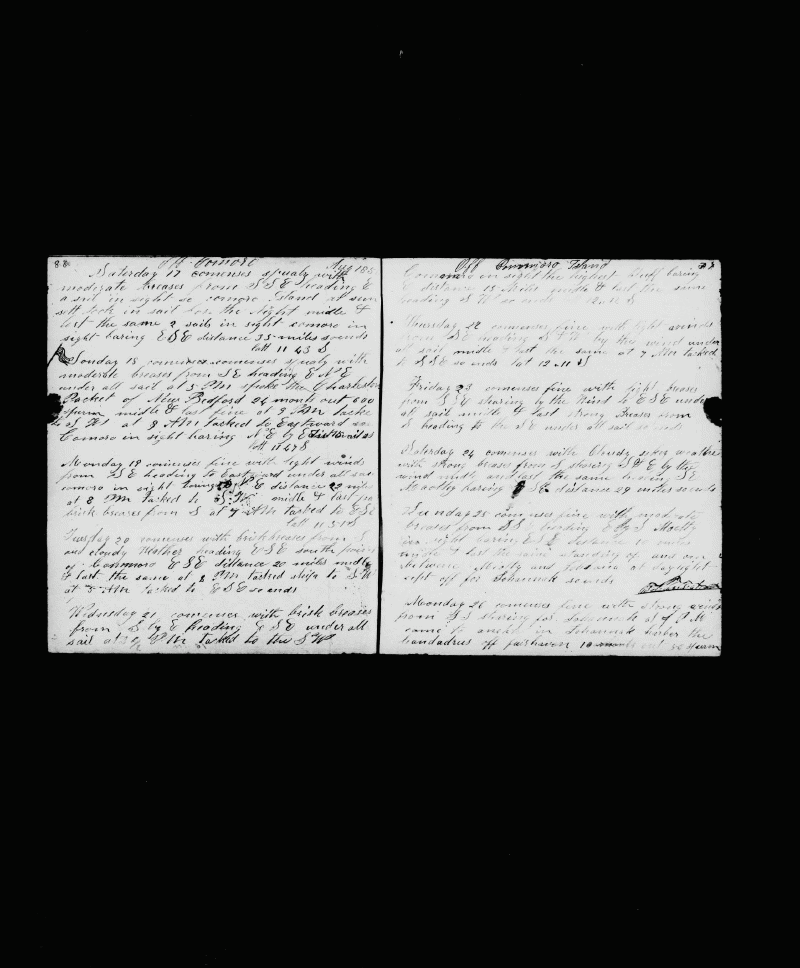 88 Off Comoro Aug 185
Saterday 17 comenses squaly with
moderate breases from S S E heading E
a sail in sight so comoro Island at sun
sett took in sail for the Night midle &
last the same 2 sails in sight comoro in
sight baring E S E distance 35 miles so ends
latt 11 43 S
Sonday 18 comences squaly with
moderate breases from S E heading E N E
under all sail at 5 PM spoke the Charleston
Packet of New Bedford 24 months out 600
sperm midle & last fine at 9 PM tacked
to S W at 8 AM tacked to Eastward
Comoro in sight baring N E by E
latt 11 47 S
Monday 19 comenses fine with light winds
from S S E heading to Eastward under all sail
comoro in sight baring E distance 22 miles
at 8 PM tacked to S W midle & last
brisk breases from S at 7 AM tacked to E S E
latt 11 51 S
Tuesday 20 comences with brisk breases from S
and cloudy Wether heading E S E south point
of Commoro E S E distance 20 miles midle
& last the same at 8 PM tacked ship to S W
at 5 AM tacked to E S E so ends
Wednesday 21 comences with brisk breases
from S by E heading E S E under all
sail at PM tacked to the S W
Off Commoro Island
Commoro in sight the highest bluff baring
E distance 15 Miles midle & last the same
heading S W so ends
Thursday 22 comenses fine with light winds
from S E heading by the wind under
all sail midle & last the same at 7 AM tacked
to S S E so ends lat 12 11 S
Friday 23 comences fine with light breases
from S E stearing by the Wind to E S E under
all sail midle & last strong breases from
S heading to the S E under all sail so ends
Saterday 24 comenses with Cloudy wether
with strong breases from S stearing E by the
wind midle and last the same heading S E
baring S E distance 29 miles so ends
Sunday 25 comenses fine with moderate
breases from S S E heading E by S
in sight baring E S E distance 10 miles
midle & last the same standing of and on
between and at daylight
kept off for Johannah so ends
Monday 26 comences fine with strong winds
from S S stearing for Johannah at P M
came to anchor in Johannah harber the
of fairhaven 10 months out 50 sperm